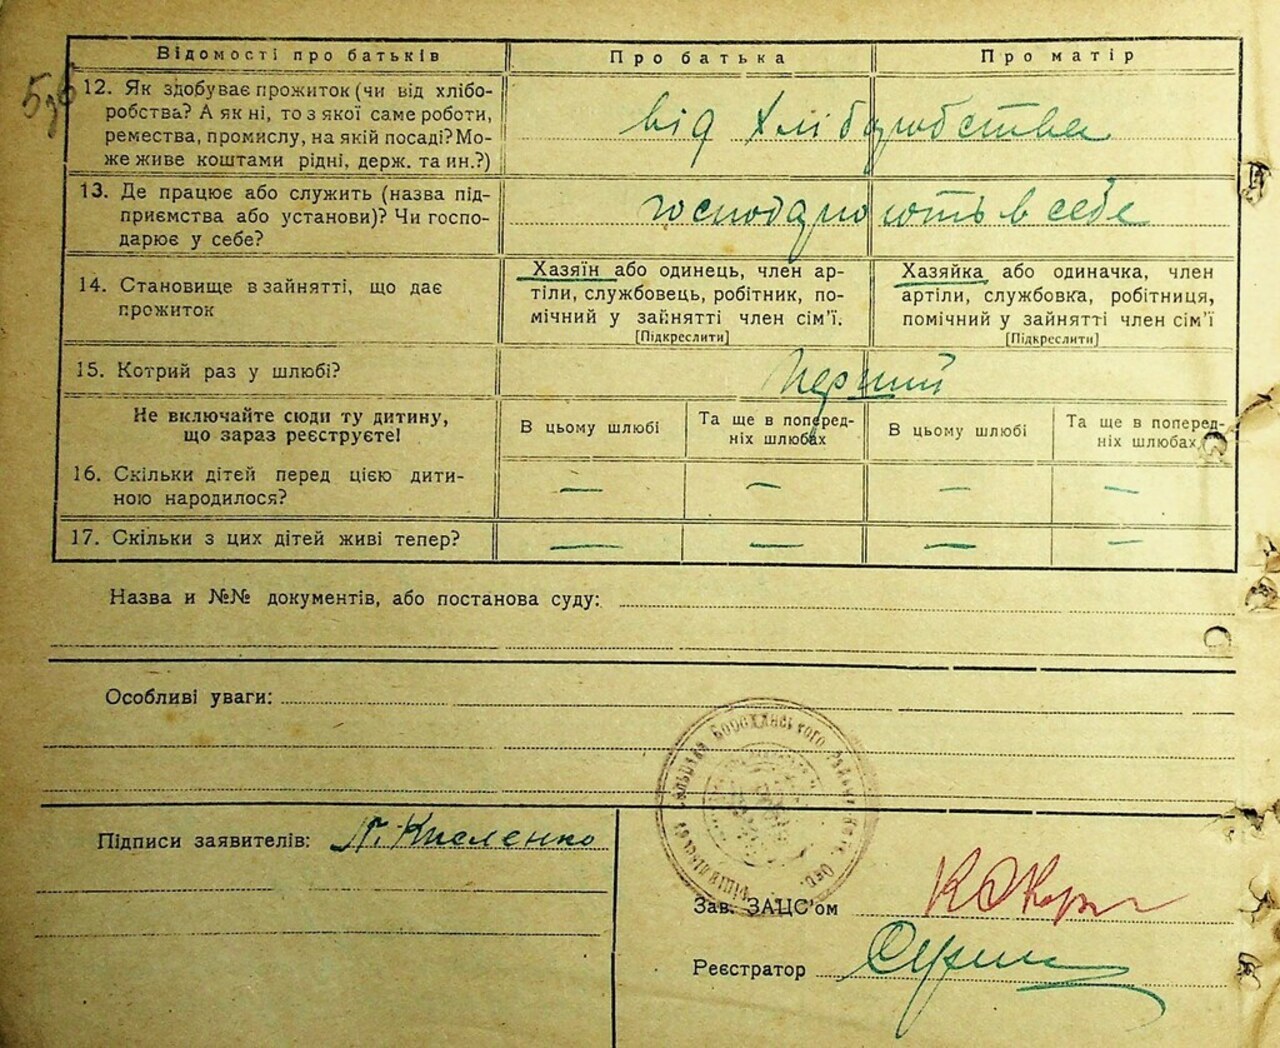 Відомості про батьків Про батька Про матір
12. Як здобуває прожиток (чи від хлібо-
робства? А як ні, то з якої саме роботи,
ремества, промислу, на якій посаді? Мо-
же живе коштами рідні, держ. та ин.?)
від хліборобства
13. Де працює або служить (назва під-
приємства або установи)? Чи госпо-
дарює у себе?
господарюють в себе
14. Становище в зайнятті, що дає
прожиток
Хазяїн або одинець, член ар-
тіли, службовець, робітник, по-
мічний у зайнятті член сім'ї.
[Підкреслити]
Хазяйка або одиначка, член
артіли, службовка, робітниця,
помічний у зайнятті член сім'ї
[Підкреслити]
15. Котрий раз у шлюбі?
Перший
Не включайте сюди ту дитину,
що зараз реєструєте!
В цьому шлюбі
Та ще в поперед-
ніх шлюбах
В цьому шлюбі
Та ще в поперед-
ніх шлюбах
16. Скільки дітей перед цією дити-
ною народилося?
— — — —
17. Скільки з цих дітей живі тепер?
— — — —
Назва и №№ документів, або постанова суду:
Особливі уваги:
Бородянського
Підписи заявителів: Кисленко
Зав. ЗАЦС'ом
Реєстратор